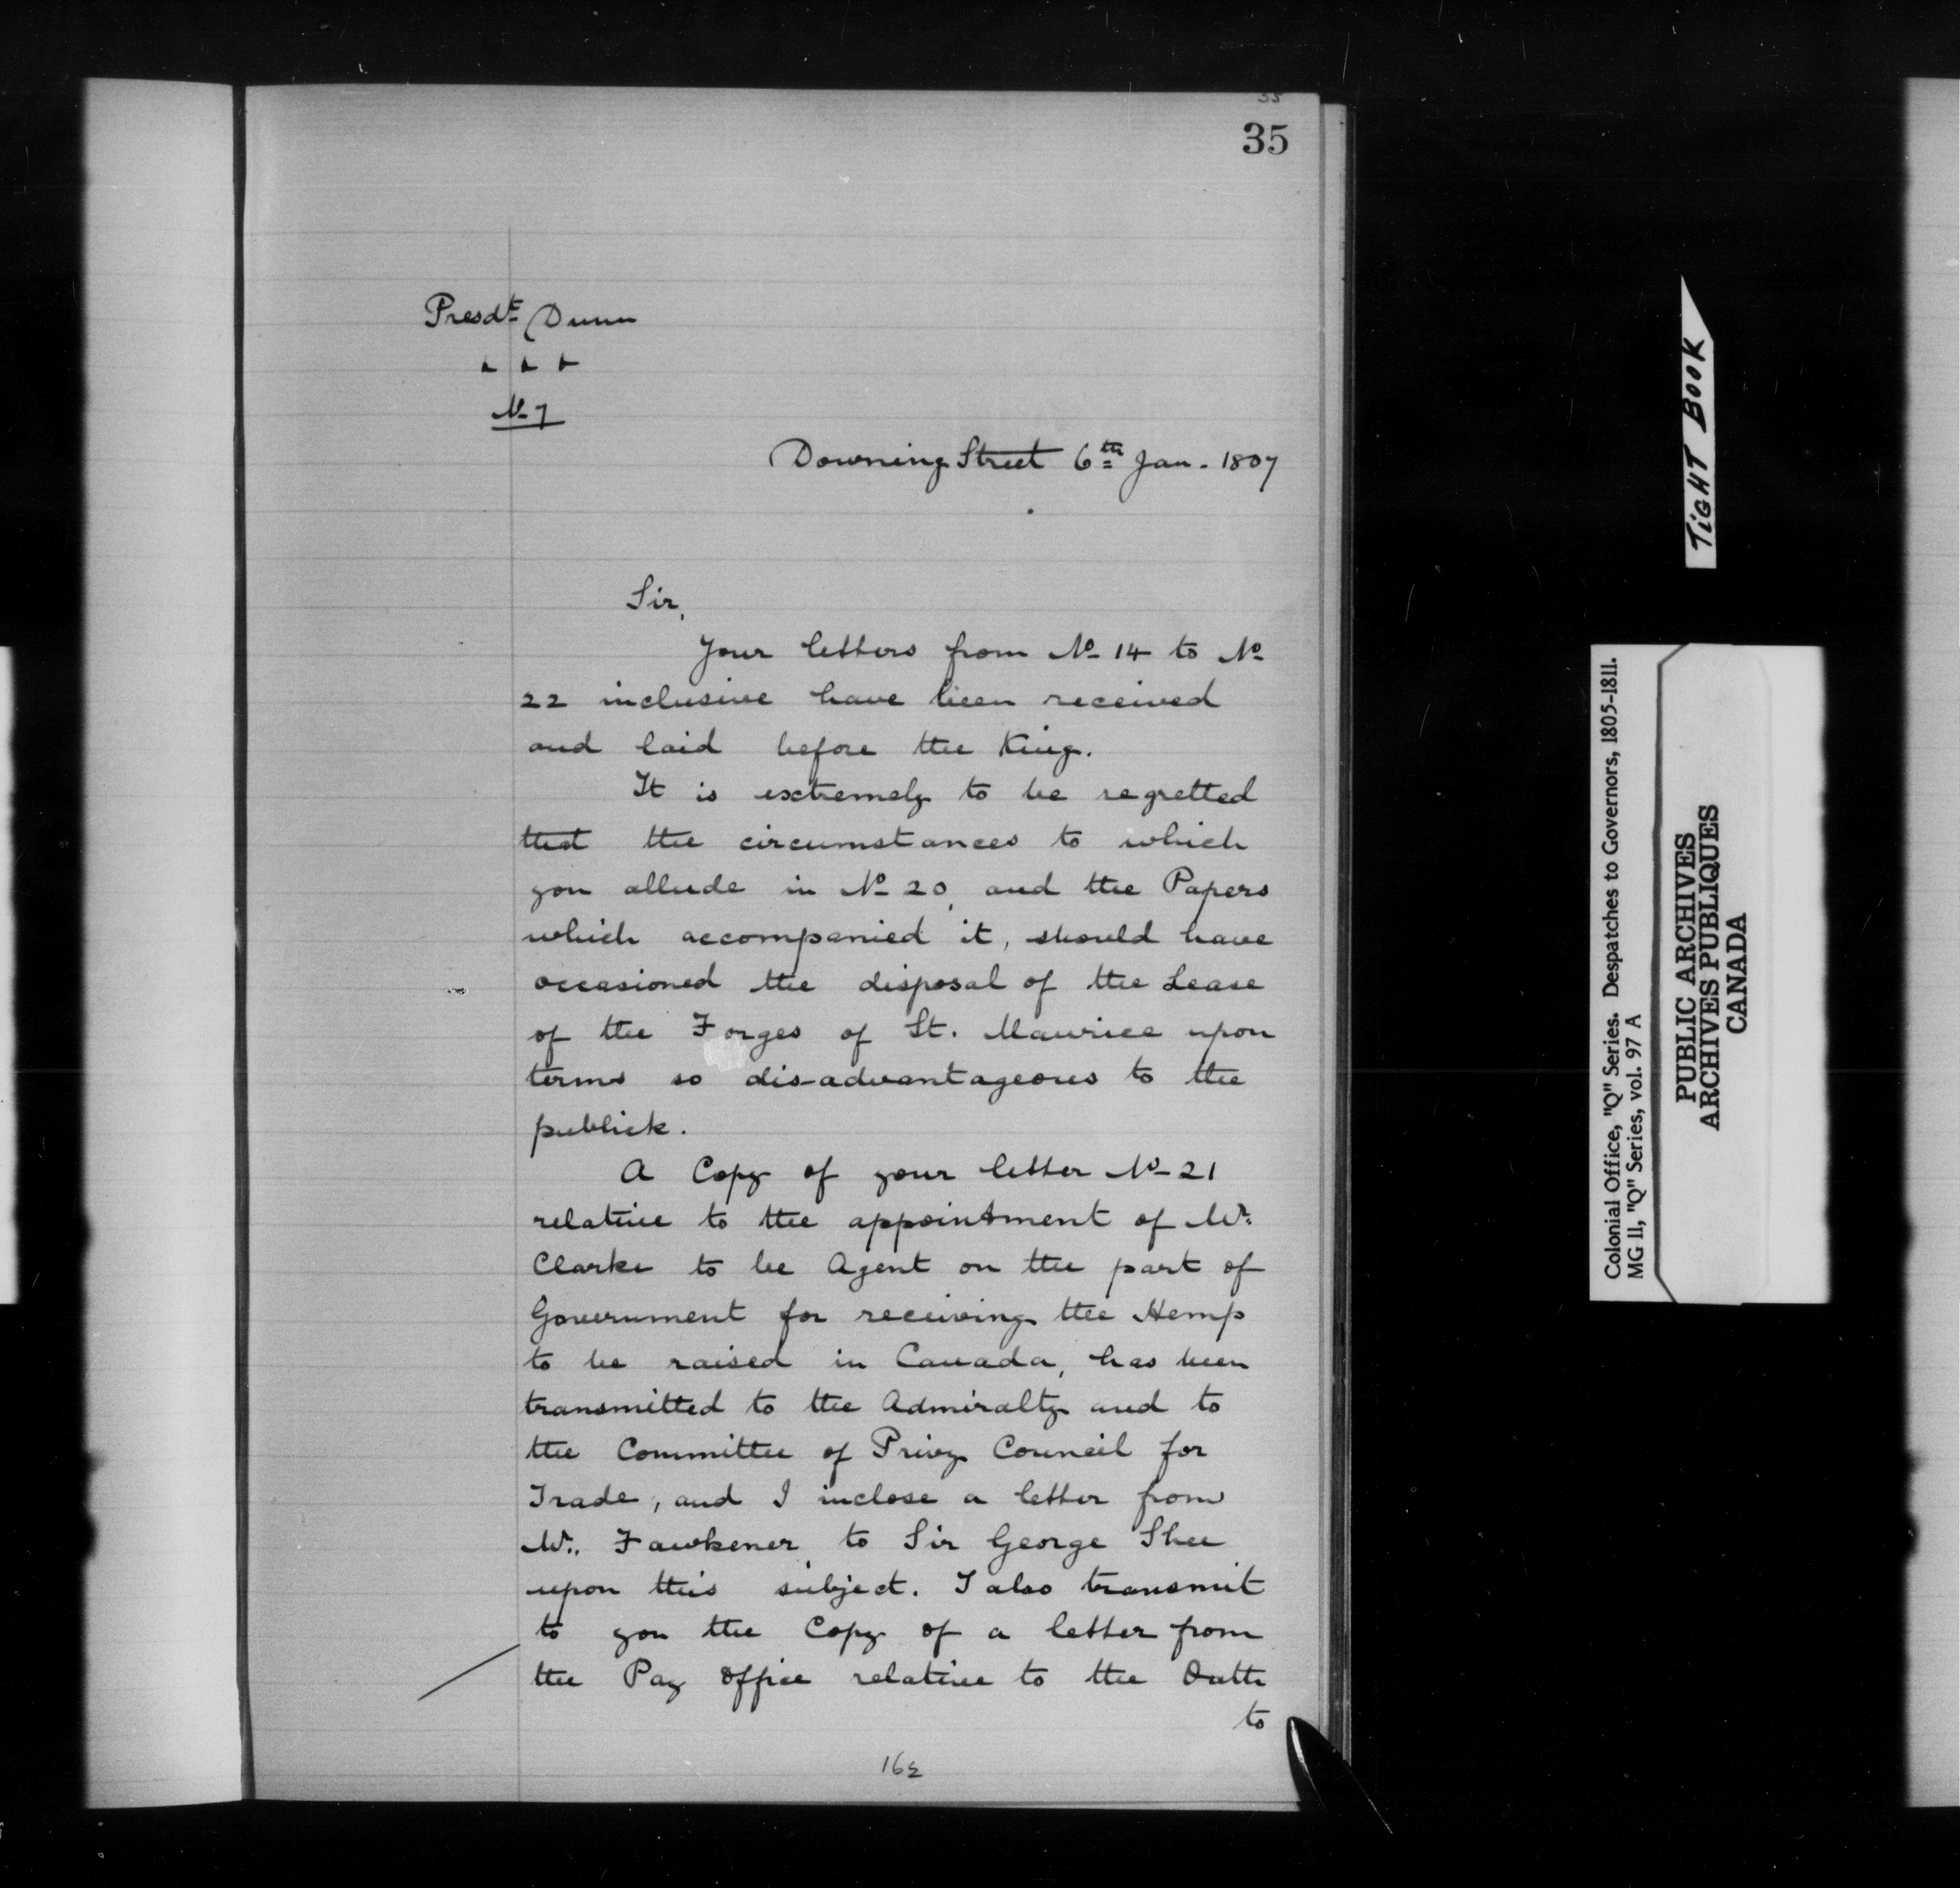 35
35
Presdt. Dunn
No 7
Downing Street 6th Jan. 1807
Sir,
Your letters from No 14 to No
22 inclusive have been received
and laid before the King.
It is extremely to be regretted
that the circumstances to which
you allude in No 20, and the Papers
which accompanied it, should have
occasioned the disposal of the Lease
of the Forges of St. Maurice upon
terms so dis-advantageous to the
publick.
A Copy of your letter No 21
relative to the appointment of Mr.
Clarke to be Agent on the part of
Government for receiving the Hemp
to be raised in Canada, has been
transmitted to the Admiralty and to
the Committee of Privy Council for
Trade, and I inclose a letter from
Mr. Fawkener, to Sir George Shee
upon this subject. I also transmit
to you the Copy of a letter from
the Pay Office relative to the Oath
to
TIGHT BOOK
Colonial Office, "Q" Series. Despatches to Governors, 1805-1811.
MG 11, "Q" Series, vol. 97 A
PUBLIC ARCHIVES
ARCHIVES PUBLIQUES
CANADA